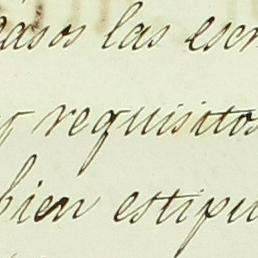 casos las escr
y requisitos
bien estipu